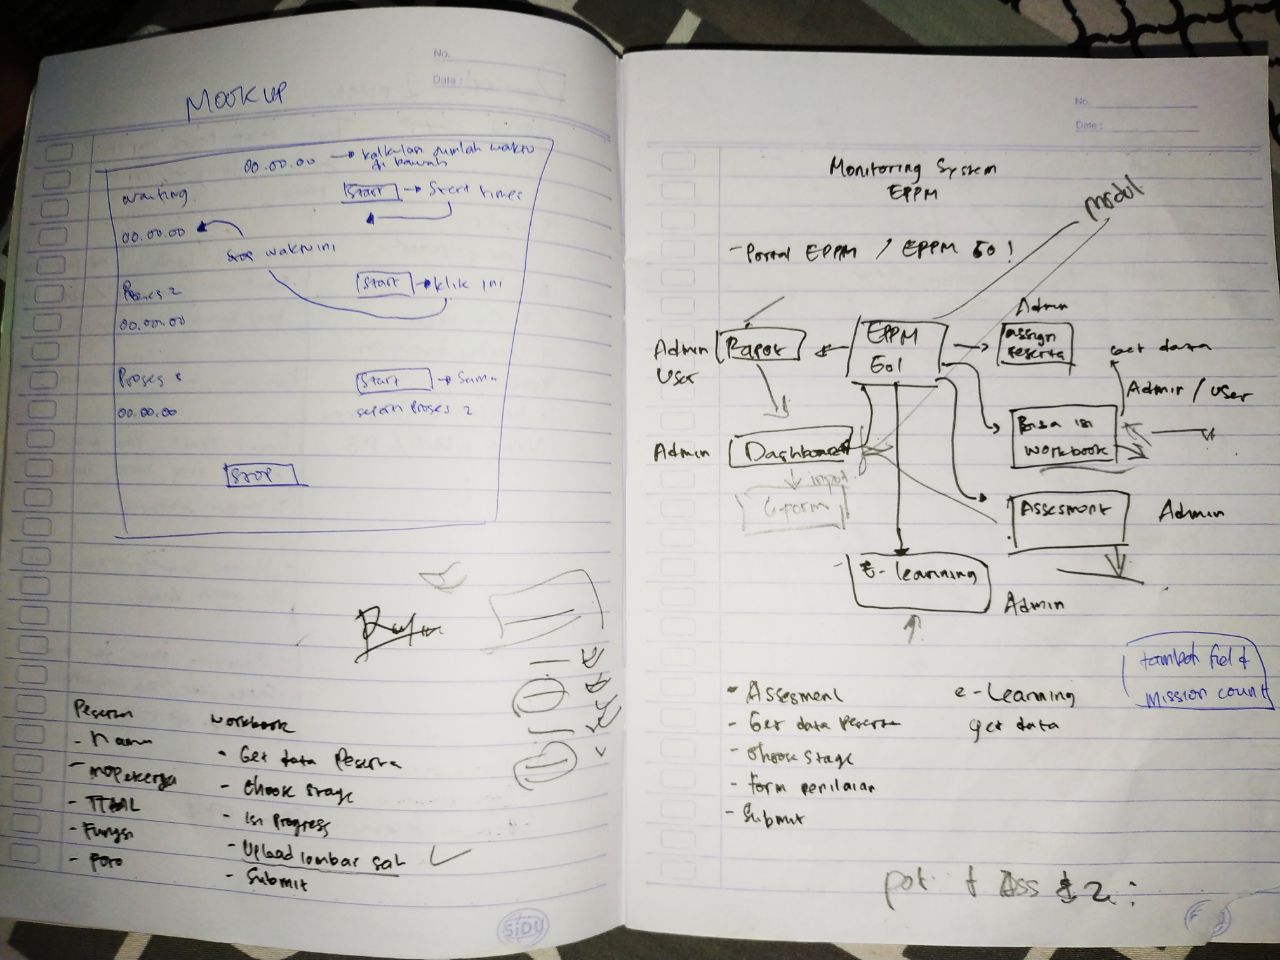 No.
Date:
MOOKUP
00.00.00 → kalkulasi jumlah waktu di bawah
Waiting
Start → Start times
00.00.00
Stop waktu ini
Proses 2
Start → klik ini
00.00.00
Proses 3
Start → Sama
00.00.00
seperti Proses 2
Stop
Peserta
- Nama
- nopekerja
- TTL
- Fungsi
- Foto
workbook
- Get data Peserta
- Chook stage
- Isi Progress
- Upload lembar sah
- Submit
SiDU
No.
Date:
Monitoring System
EPPM
modul
- Portal EPPM / EPPM Go!
Admin
User
Rapot
EPPM
Go!
Admin
assign
peserta
Get data
Admin / User
Bisa isi
workbook
Admin
Dashboard
input
G-form
Assesment
Admin
E-learning
Admin
tambah field
mission count
- Assesment
- Get data Peserta
- Choose stage
- form penilaian
- Submit
e-Learning
get data